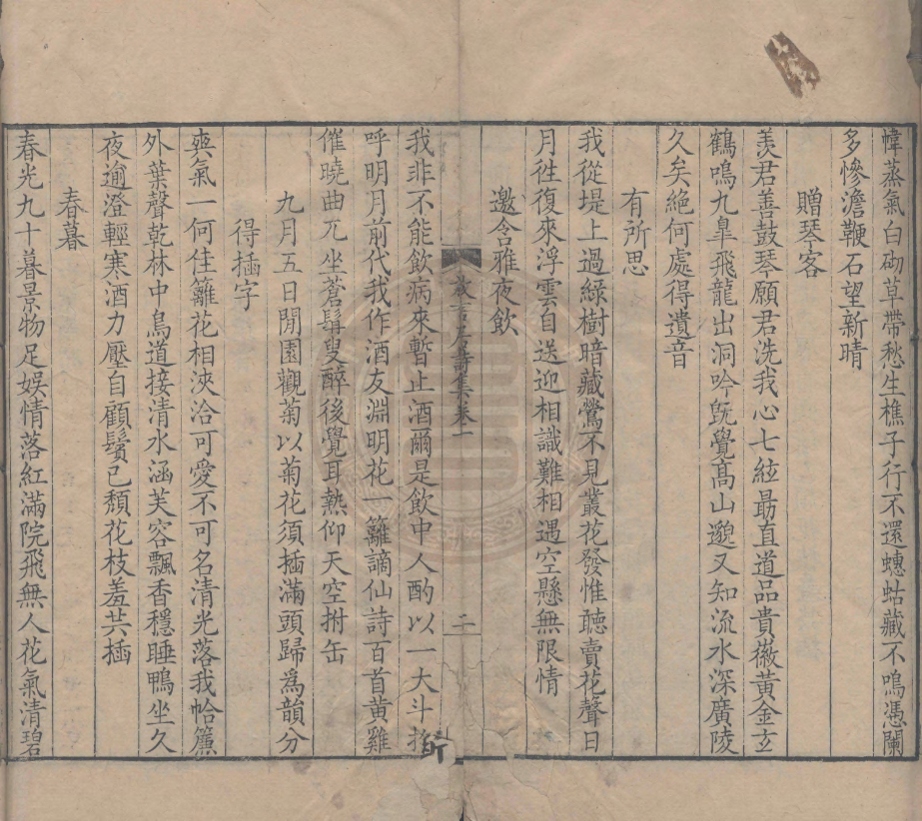 幃蒸氣白砌草帶愁生樵子行不還蟪蛄藏不鳴憑闌
多慘澹鞭石望新晴
贈琴客
羨君善鼓琴願君洗我心七絃最直道品貴徽黃金玄
鶴鳴九臯飛龍出洞吟旣覺髙山邈又知流水深廣陵
久矣絕何處得遺音
有所思
我從堤上過綠樹暗藏鶯不見叢花發惟聽賣花聲日
月徃復來浮雲自送迎相識難相遇空懸無限情
邀含雅夜飲
居詩集卷一
二
我非不能飲病來暫止酒爾是飲中人酌以一大斗
呼明月前代我作酒友淵明花一籬謫仙詩百首黄雞
催曉曲兀坐蒼髯叟醉後覺耳熱仰天空拊缶
九月五日閒園觀菊以菊花須插滿頭歸爲韻分
得插字
爽氣一何佳籬花相浹洽可愛不可名清光落我帢簾
外葉聲乾林中鳥道接清水涵芙容飄香穩睡鴨坐久
夜逾澄輕寒酒力壓自顧鬢已頹花枝羞共插
春暮
春光九十暮景物足娛情落紅滿院飛無人花氣清碧